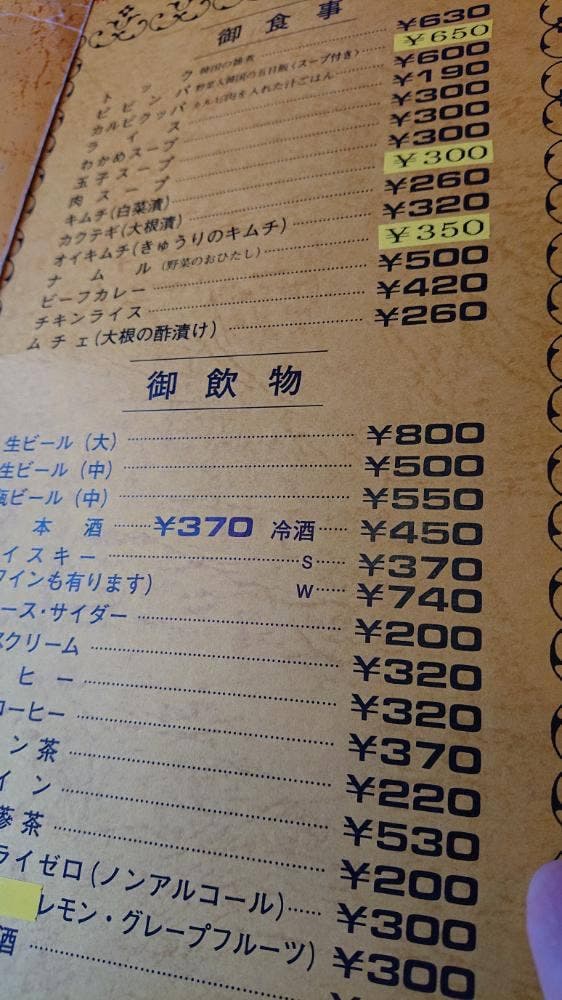 御食事
トック 韓国の雑煮 ¥630
ビビンバ 野菜入韓国の五目飯(スープ付き) ¥650
カルビクッパ カルビ肉を入れた汁ごはん ¥600
ライス ¥190
わかめスープ ¥300
玉子スープ ¥300
肉スープ ¥300
キムチ(白菜漬) ¥300
カクテギ(大根漬) ¥260
オイキムチ(きゅうりのキムチ) ¥320
ナムル(野菜のおひたし) ¥350
ビーフカレー ¥500
チキンライス ¥420
ムチェ(大根の酢漬け) ¥260
御飲物
生ビール(大) ¥800
生ビール(中) ¥500
瓶ビール(中) ¥550
本酒 ¥370 冷酒 ¥450
イスキー S ¥370
ワインも有ります) W ¥740
ース・サイダー ¥200
スクリーム ¥320
ヒー ¥320
コーヒー ¥370
ン茶 ¥220
イン ¥530
蔘茶 ¥200
ライゼロ(ノンアルコール) ¥300
レモン・グレープフルーツ) ¥300
酒